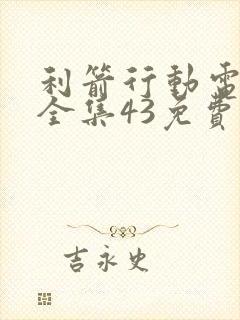 利箭行動電
全集43免費
吉永史